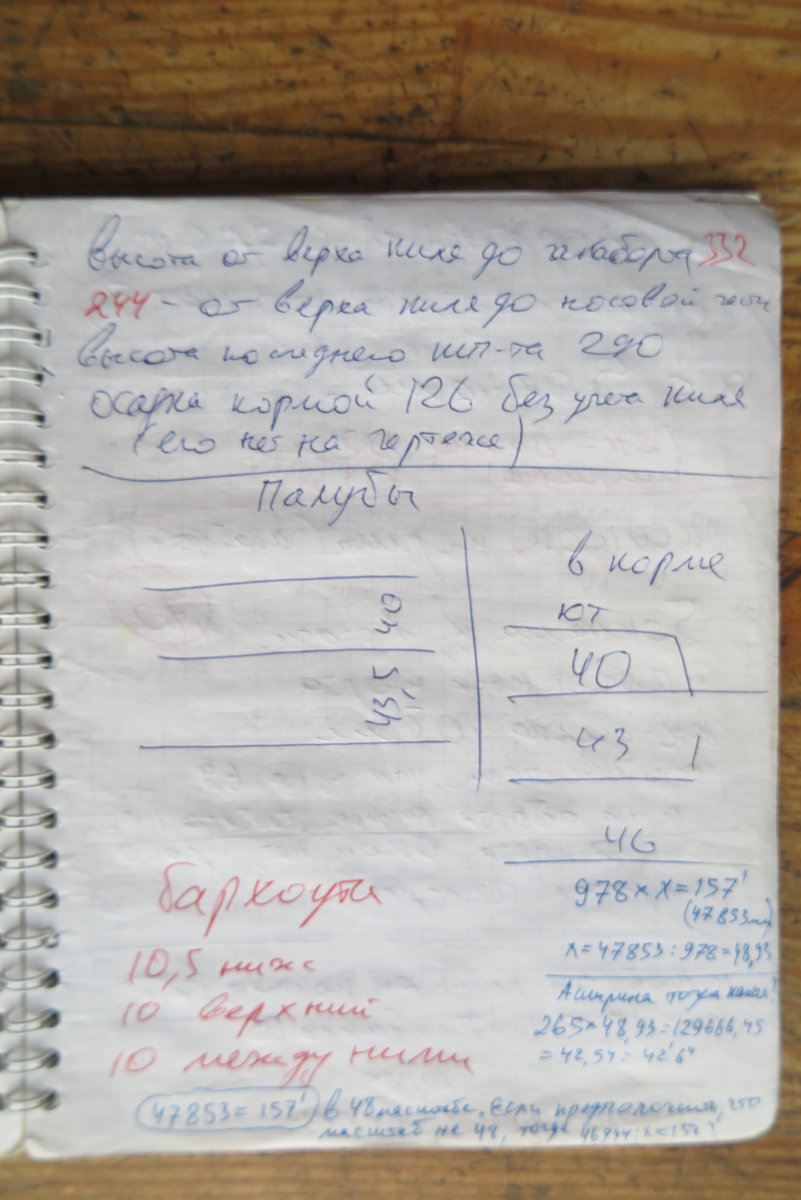 Высота от верха киля до гакаборта 332
244 - от верха киля до носовой части
Высота последнего шп-та 290
осадка кормой 126 без учета киля
(его нет на чертеже)
Палубы
40
43,5
в корме
ют
40
43
46
бархоуты
10,5 ниже
10 верхний
10 между ними
978 × x = 157'
(47853мм)
x = 47853 : 978 = 48,93
А ширина тогда какая?
265 × 48,93 = 129666,45
= 42,54 = 42'6"
47853 = 157' в 48 масштабе. Если предположить, что
масштаб не 48, тогда : x = 157'